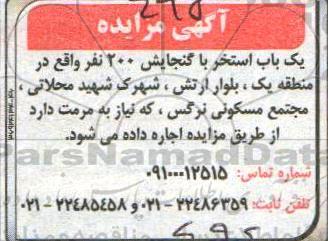 آگهی مزایده
یک باب استخر با گنجایش ۲۰۰ نفر واقع در
منطقه یک ، بلوار ارتش ، شهرک شهید محلاتی ،
مجتمع مسکونی نرگس ، که نیاز به مرمت دارد
از طریق مزایده اجاره داده می شود.
شماره تماس: ۰۹۱۰۰۰۱۲۵۱۵
تلفن ثابت: ۲۲۴۸۶۳۵۹ - ۰۲۱ و ۲۲۴۸۵۴۵۸ - ۰۲۱
ParsNamadData